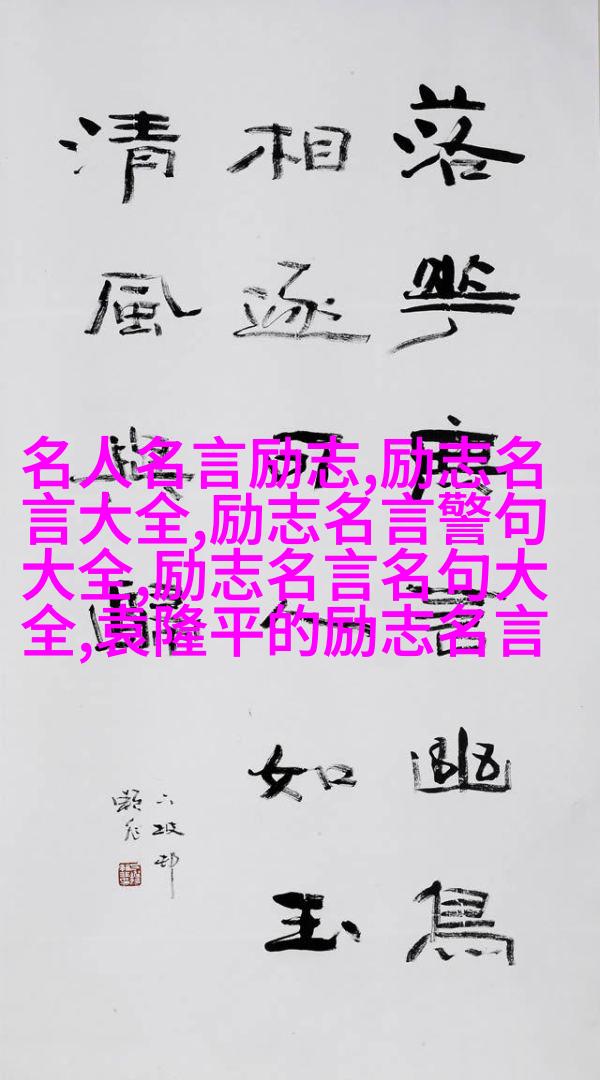 落華言幽鳥
相逐可人如玉
清風與歸
名人名言励志,励志名
言大全,励志名言警句
大全,励志名言名句大
全,袁隆平的励志名言